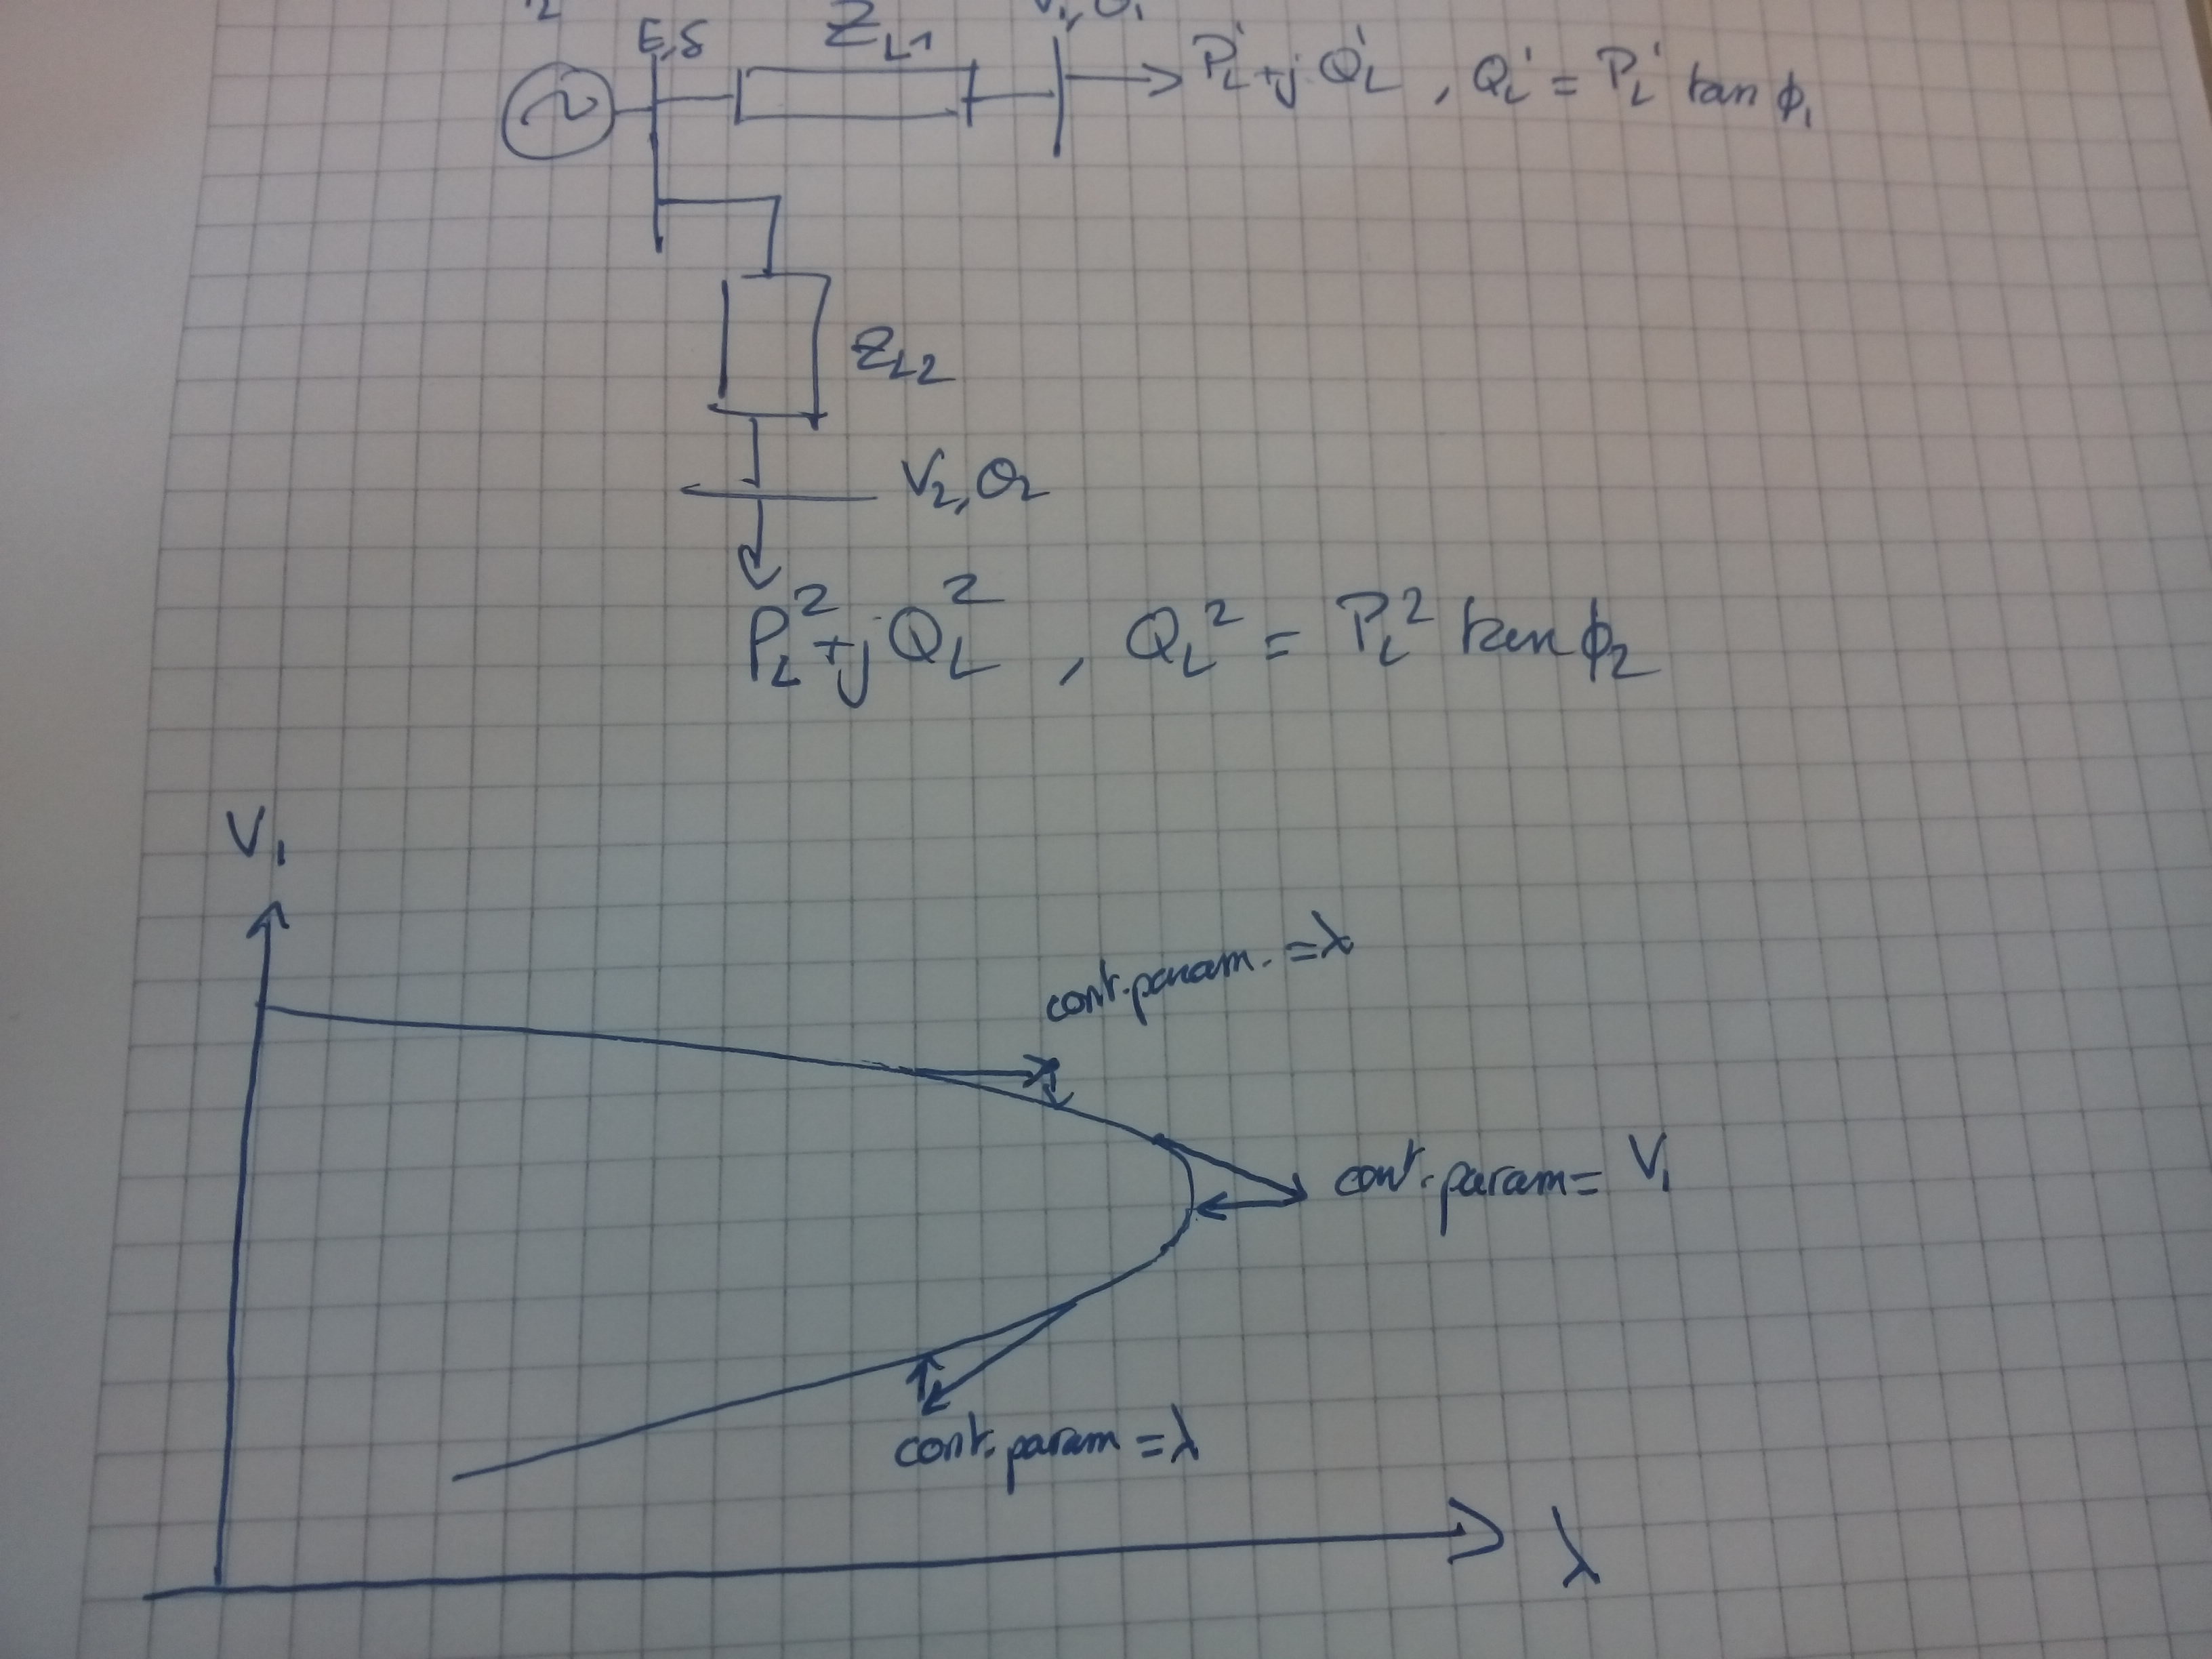 E,δ
Z_L1
P_L^1 + j Q_L^1 , Q_L^1 = P_L^1 tan ϕ_1
Z_L2
V_2, θ_2
P_L^2 + j Q_L^2 , Q_L^2 = P_L^2 tan ϕ_2
V_1
cont. param. = λ
cont. param = V_1
cont. param = λ
λ